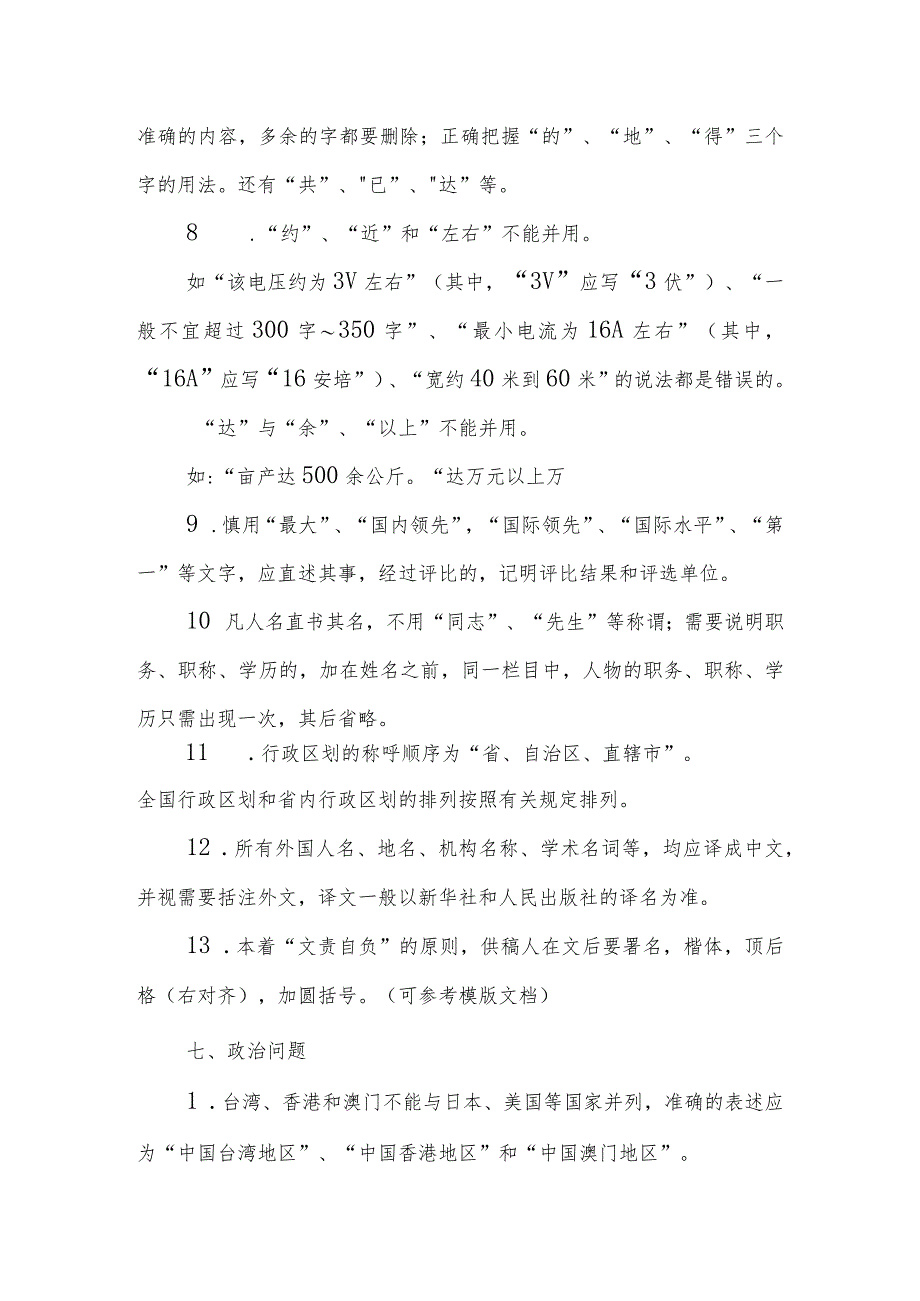 准确的内容，多余的字都要删除；正确把握“的”、“地”、“得”三个
字的用法。还有“共”、"已”、"达”等。
8 .“约”、“近”和“左右”不能并用。
如“该电压约为3V左右”（其中，“3V”应写“3伏”）、“一
般不宜超过300字~350字”、“最小电流为16A左右”（其中，
“16A”应写“16安培”）、“宽约40米到60米”的说法都是错误的。
“达”与“余”、“以上”不能并用。
如:“亩产达500余公斤。“达万元以上万
9 .慎用“最大”、“国内领先”，“国际领先”、“国际水平”、“第
一”等文字，应直述其事，经过评比的，记明评比结果和评选单位。
10 凡人名直书其名，不用“同志”、“先生”等称谓；需要说明职
务、职称、学历的，加在姓名之前，同一栏目中，人物的职务、职称、学
历只需出现一次，其后省略。
11 .行政区划的称呼顺序为“省、自治区、直辖市”。
全国行政区划和省内行政区划的排列按照有关规定排列。
12 .所有外国人名、地名、机构名称、学术名词等，均应译成中文，
并视需要括注外文，译文一般以新华社和人民出版社的译名为准。
13 .本着“文责自负”的原则，供稿人在文后要署名，楷体，顶后
格（右对齐），加圆括号。（可参考模版文档）
七、政治问题
1 .台湾、香港和澳门不能与日本、美国等国家并列，准确的表述应
为“中国台湾地区”、“中国香港地区”和“中国澳门地区”。